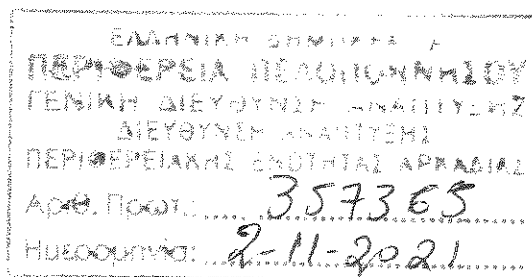 ΕΛΛΗΝΙΚΗ ΔΗΜΟΚΡΑΤΙΑ
ΠΕΡΙΦΕΡΕΙΑ ΠΕΛΟΠΟΝΝΗΣΟΥ
ΓΕΝΙΚΗ ΔΙΕΥΘΥΝΣΗ ΑΝΑΠΤΥΞΗΣ
ΔΙΕΥΘΥΝΣΗ ΑΝΑΠΤΥΞΗΣ
ΠΕΡΙΦΕΡΕΙΑΚΗΣ ΕΝΟΤΗΤΑΣ ΑΡΚΑΔΙΑΣ
Αριθ. Πρωτ.: 357365
Ημερομηνία: 2-11-2021